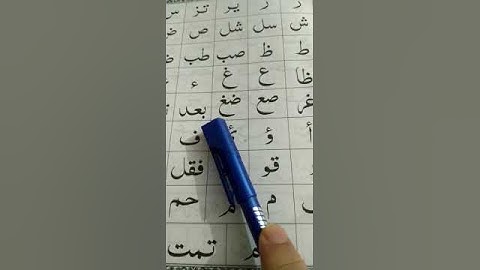 ر یر تز س
ش سل شل ص ض
ط ظ صب طب
ظا ع غ ء
غر صع ضغ بعد
أ ؤ ف
قو فقل
م حم
م تمت